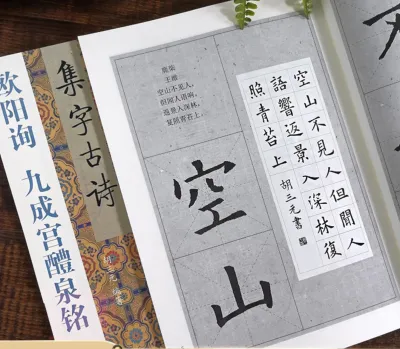 欧阳询 九成宫醴泉铭
集字古诗
鹿柴
王维
空山不见人，
但闻人语响。
返景入深林，
复照青苔上。
空山不見人但聞人
語響返景入深林復
照青苔上
胡三元書
空
山